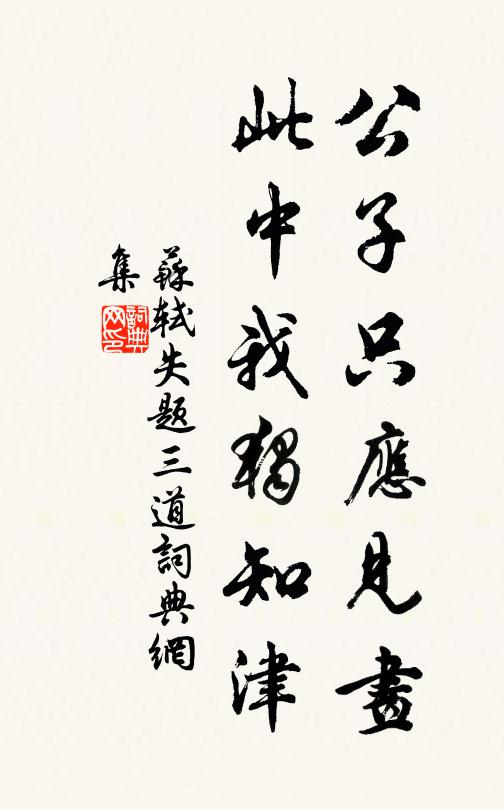 公子只應見畫
此中我獨知津
蘇軾失題三道詞典網
集
詞典网印